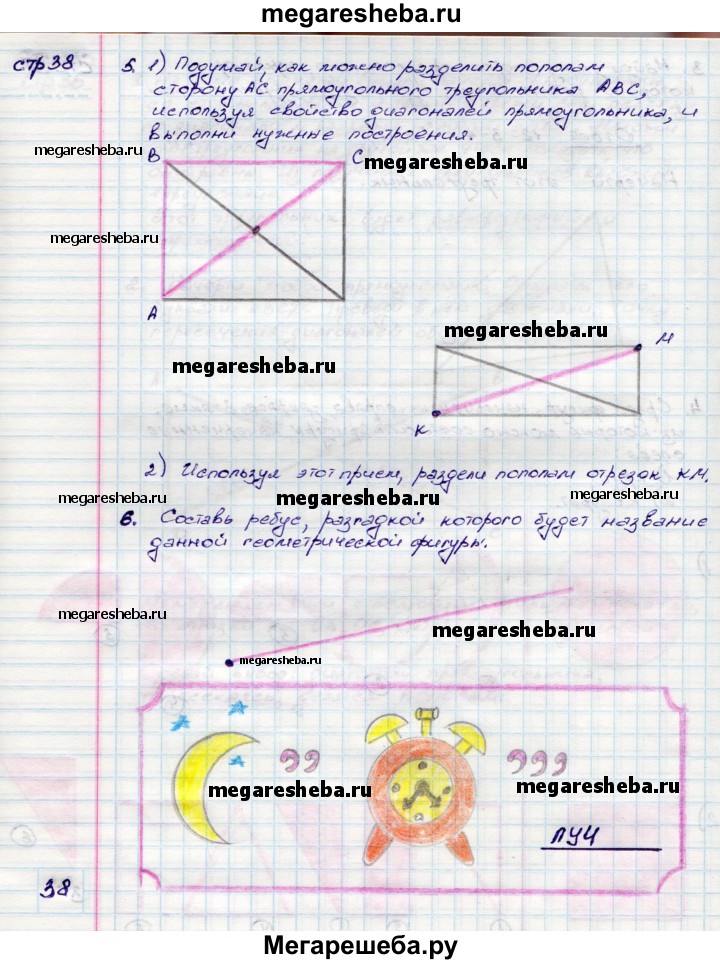 megaresheba.ru
стр 38
5. 1) Подумай, как можно разделить пополам
сторону АС прямоугольного треугольника АВС,
используя свойство диагоналей прямоугольника, и
выполни нужные построения.
megaresheba.ru
В
С
megaresheba.ru
megaresheba.ru
А
megaresheba.ru
М
megaresheba.ru
К
2) Используя этот прием, раздели пополам отрезок КМ.
megaresheba.ru
megaresheba.ru
megaresheba.ru
6. Составь ребус, разгадкой которого будет название
данной геометрической фигуры.
megaresheba.ru
megaresheba.ru
megaresheba.ru
,,
,,,
megaresheba.ru
megaresheba.ru
ЛУЧ
38
Мегарешеба.ру